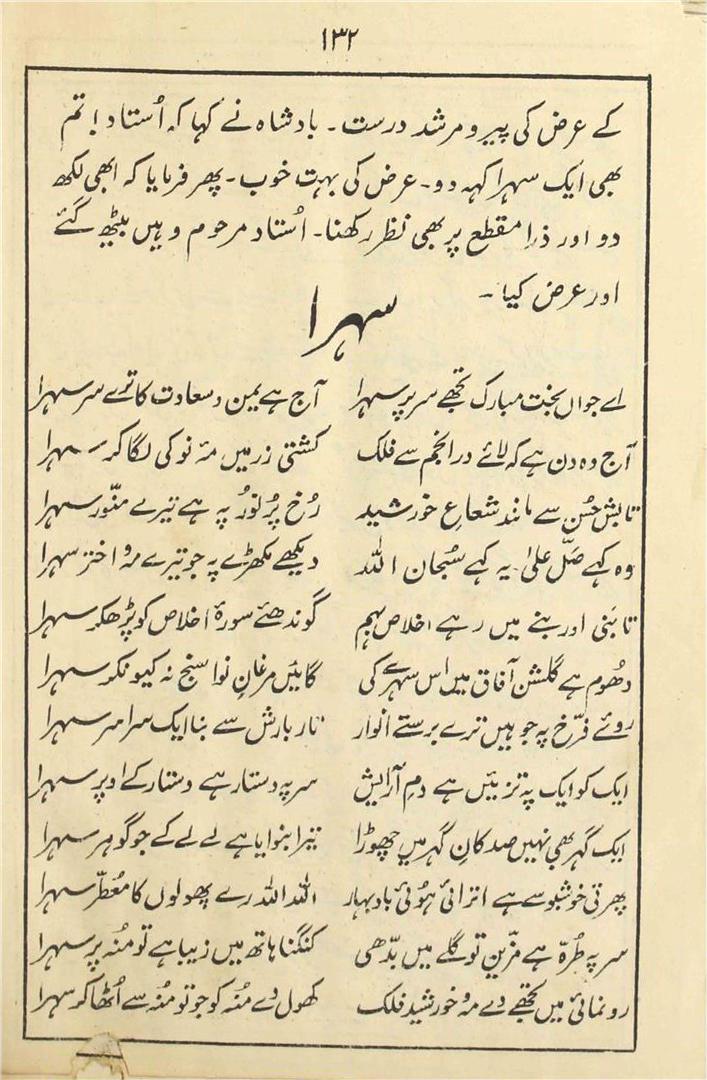 ۱۳۲
کے عرض کی پیرو مرشد درست۔ بادشاہ نے کہا کہ اُستاد! تم
بھی ایک سہرا کہہ دو۔ عرض کی بہت خوب۔ پھر فرمایا کہ ابھی لکھ
دو اور ذرا مقطع پر بھی نظر رکھنا۔ اُستاد مرحوم وہیں بیٹھ گئے
اور عرض کیا۔
سہرا
اے جواں بخت مبارک تجھے سر پر سہرا آج ہے یمن و سعادت کا ترے سر سہرا
آج وہ دن ہے کہ لائے در انجم سے فلک کشتی زر میں مۂ نو کی لگا کر سہرا
تابش حُسن سے مانند شعاعِ خورشید رُخ پُر نُور پہ ہے تیرے منّور سہرا
وہ کہے صلّ علیٰ۔ یہ کہے سُبحان اللہ دیکھے مکھڑے پہ جو تیرے مہ و اختر سہرا
تا بَنی اور بنے میں رہے اخلاص بہم گوندھئے سورۂ اخلاص کو پڑھکر سہرا
دھُوم ہے گلشن آفاق میں اس سہرے کی گائیں مرغانِ نوا سنج نہ کیونکر سہرا
روئے فرّخ پہ جو ہیں ترے برستے انوار تار بارش سے بنا ایک سراسر سہرا
ایک کو ایک پہ تزئیں ہے دمِ آرایش سر پہ دستار ہے دستار کے اوپر سہرا
ایک گہر بھی نہیں صد کانِ گہر میں چھوڑا تیرا بنوایا ہے لے لے کے جو گوہر سہرا
پھرتی خوشبو سے ہے اترائی ہوُئی باد بہار اللہ اللہ رے پھولوں کا معُطّر سہرا
سر پہ طُرّہ ہے مزّین تو گلے میں بدّھی کنگنا ہاتھ میں زیبا ہے تو مُنہ پر سہرا
رونمائی میں تجھے دے مہ و خورشید فلک کھول دے مُنہ کو جو تو مُنہ سے اُٹھا کر سہرا